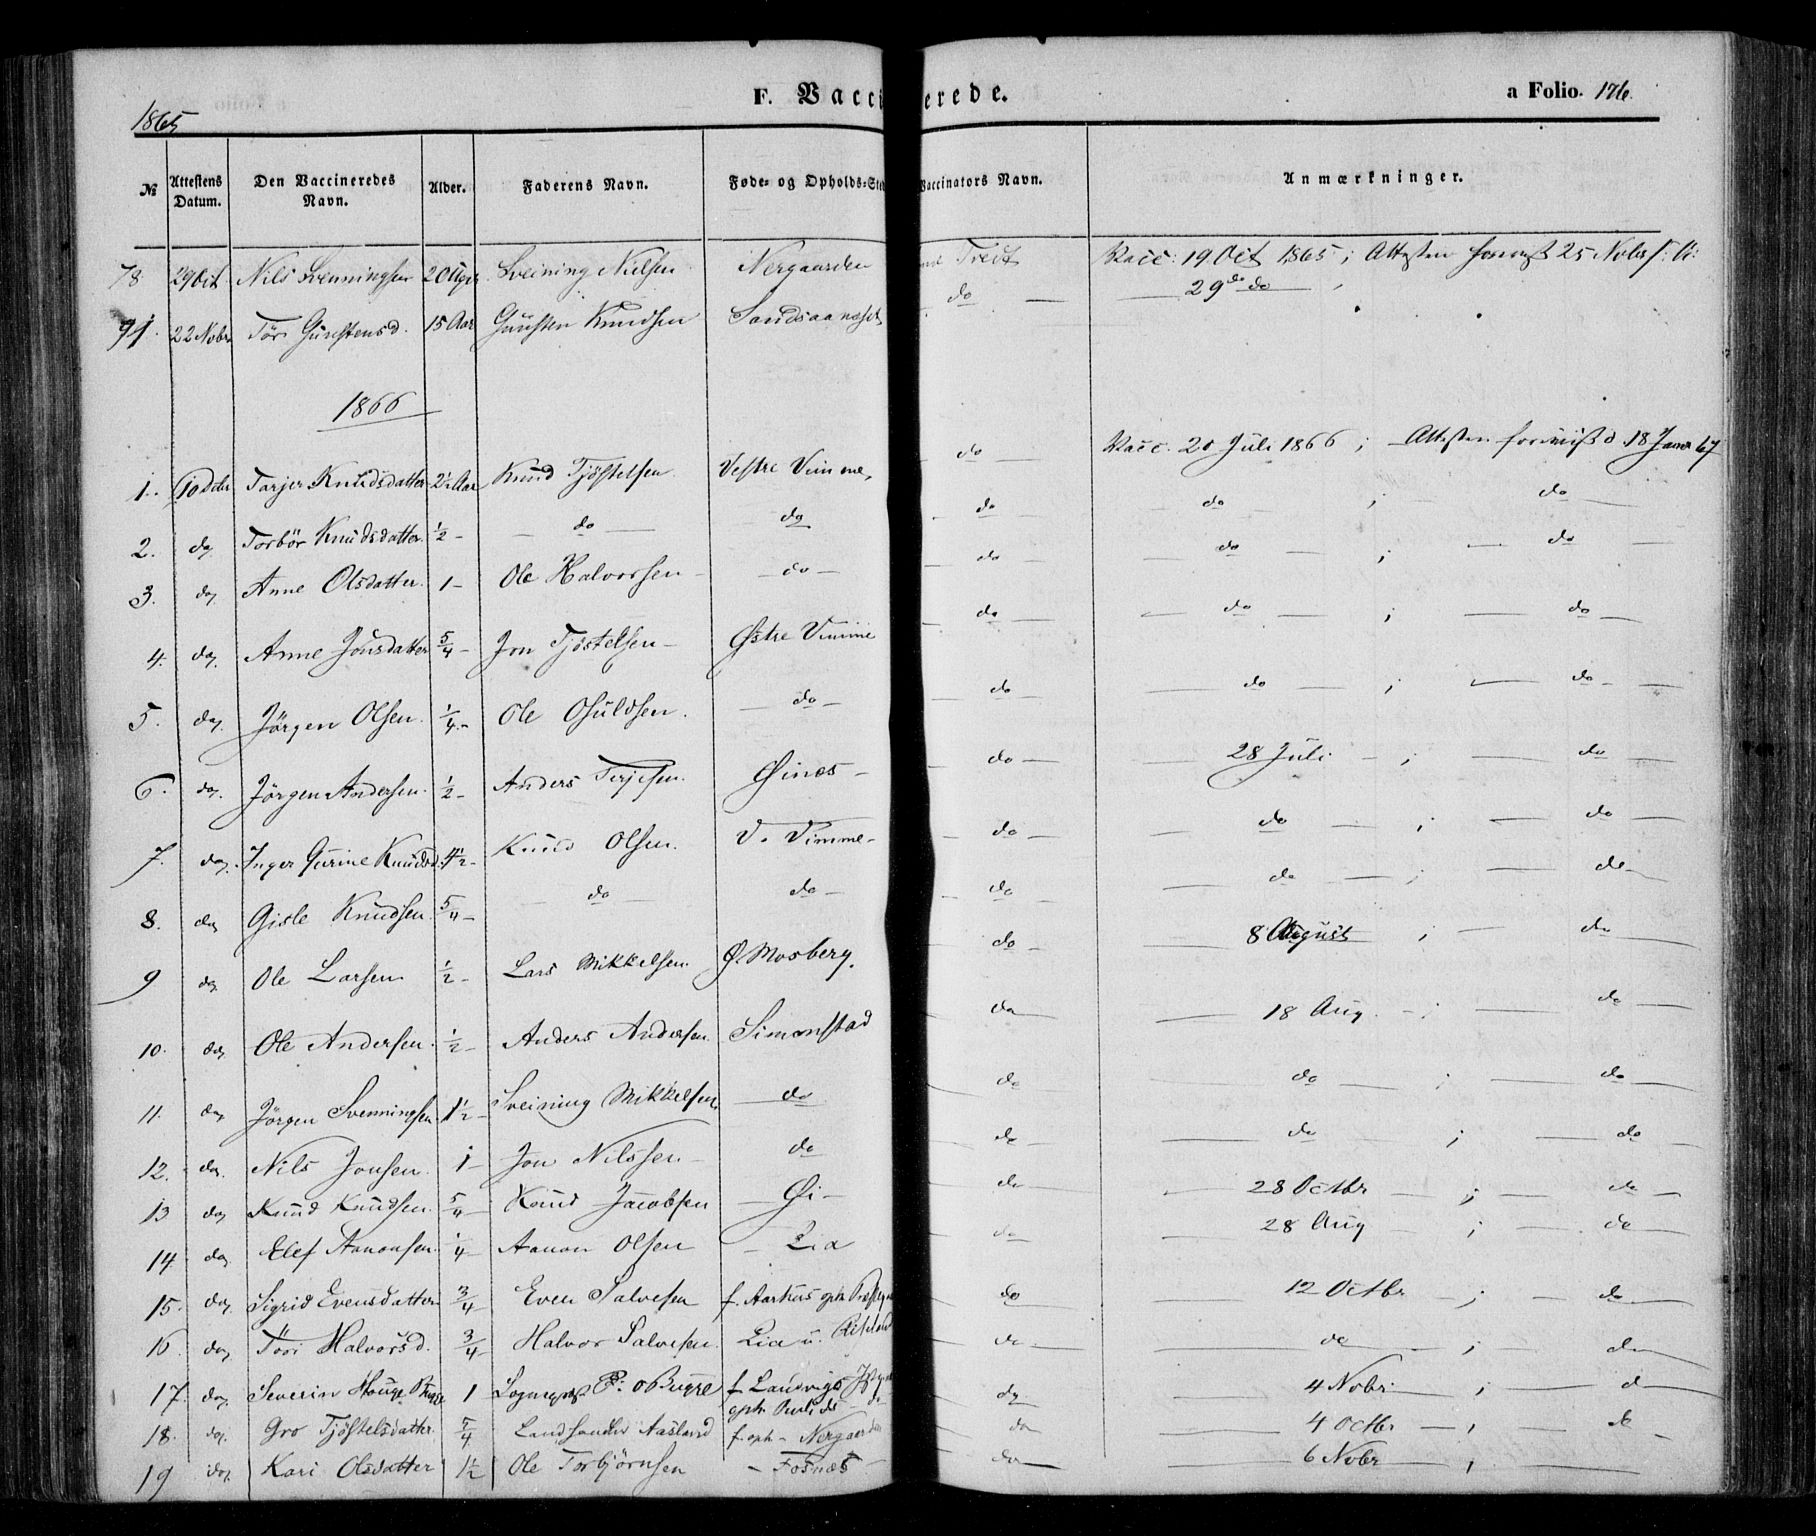 1865 F. Vacci erede. a Folio. 176.
№ Attestens Datum. Den Vaccineredes Navn. Alder. Faderens Navn. Føde- og Opholds-Sted Vaccinators Navn. Anmærkninger.
78 29 Oct Nils Svenningsen Sveining Nielsen Nergaarden Tredt Vacc: 19 Oct 1865; Attesten 25 Nobr
22 Nobr Töri Gunstensd. 15 Aar Gunsten Knudsen do — 29 do do
1866
1. Tarjer Knudsdatter 2½ Aar Knud Tjöstelsen Vestre Vimme, do Vacc. 20 Juli 1866; Attesten 18 Janr 67
2. do Torbör Knudsdatter. ½ - — do — do do — do — ; — do —
3. do, Anne Olsdatter. 1 - Ole Halvorsen — do — do — do — ; — do —
4. do, Anne Jonsdatter 5/4 - Jon Tjöstelsen — Østre Vimme do — do — ; — do —
5. do, Jörgen Olsen. ¼ - Ole Osuldsen. — do — do — do — ; — do —
6. do, Jörgen Andersen. ½ - Anders Terjesen. Øinæs — do — 28 Juli — ; — do
7. do, Inger Gurine Knudsd. 4½ - Knud Olsen. V. Vimme — do — do — ; — do —
8. do Gisle Knudsen. 5/4 - — do — do — do — do — ; — do —
9 do Ole Larsen ½ - Lars Mikkelsen. Ø. Mosberg. do — 8 August ; — do
10. do, Ole Andersen. ½ - Anders Andersen. Simonstad do — 18 Aug. — ; — do —
11. do Jörgen Svenningsen 1½ - Sveining Mikkelsen. — do — do — do — ; — do —
12. do, Nils Jonsen. 1 - Jon Nilssen — do do — do — ; — do
13 do Knud Knudsen. 5/4 - Knud Jacobsen — Øi — do — 28 Octbr — ; — do —
14 do, Elef Aanonsen. ¼ - Aanon Olsen — Lia do — 28 Aug — ; — do —
15. do, Sigrid Evensdatter ¾ Even Salvesen f. do — 12 Octbr — ; — do
16. do, Töri Halvorsd. ¾ - Halvor Salvesen. Lia do — do — ; — do
17. do, Severin 1 f. do — 4 Nobr. ; — d
18. do, Gro Tjöstelsdatter. 5/4 Aasland f. oph - do — 4 Octbr — ; — do
19 do, Kari Olsdatter 1½ Ole Torbjörnsen — Fosnæs — do — 6 Nobr — ;